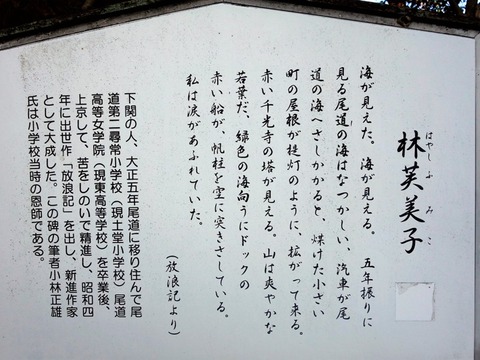 はやしふみこ
林芙美子
海が見えた。海が見える。五年振りに
見る尾道の海はなつかしい、汽車が尾
道の海へさしかかると、煤けた小さい
町の屋根が提灯のように、拡がって来る。
赤い千光寺の塔が見える。山は爽やかな
若葉だ、緑色の海向うにドックの
赤い船が、帆柱を空に突きさしている。
私は涙があふれていた。
(放浪記より)
下関の人、大正五年尾道に移り住んで尾
道第二尋常小学校(現土堂小学校)尾道
高等女学院(現東高等学校)を卒業後、
上京して、苦をしのいで精進し、昭和四
年に出世作「放浪記」を出し、新進作家
として大成した。この碑の筆者小林正雄
氏は小学校当時の恩師である。